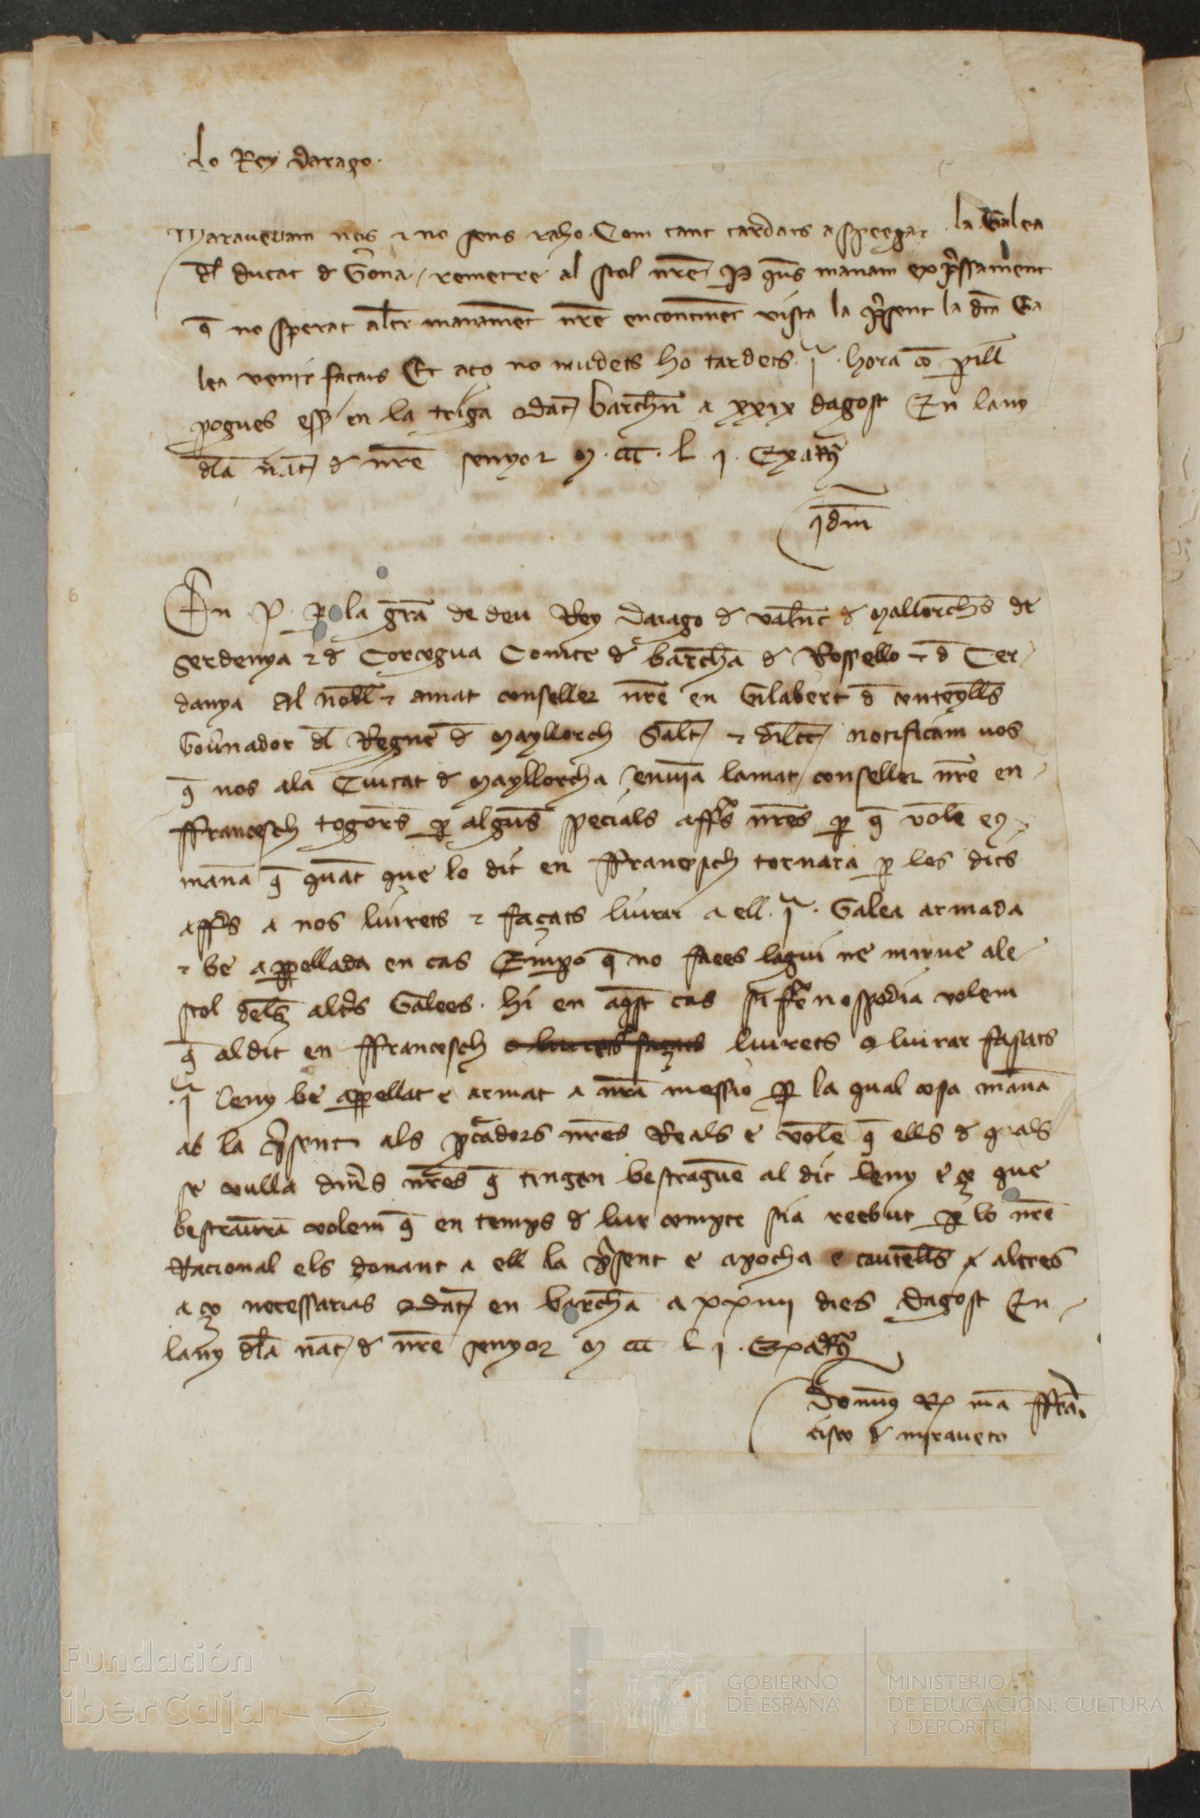 lo Rey darago.
Maraveyam nos e no sens raho Com tant tardats aspeegar la Galea
dl ducat d Gêna remetre al stol nrẽ p̱ q̃us manam exp̃ssament
q̃ no sperat altr̃ manamẽt nrẽ encontinẽt vista la p̃sent la dtã Ga
lea venir façats Et aço no mudets ho tardets. ĩ. hora cõ p̱ill
pogues ess̃ en la triga dat̃ barchñ a xxix dagost En lany
dlã nat̃ d nrẽ senyor M. ccc. L. j. Exarꝰ
jdm̃
En P. p̱ la grã de deu Rey Darago d valẽnc̃ d Mallorch̃s de
Serdenya e d Corcegua Comte d barchã d Rossello e d Cer
danya Al nobl̃ e amat conseller nrẽ en Gilabert d centeylls̃
Gov̾nador dl Regne d Mayllorch Salt̃ e dilcc̃ notificam vos
q̃ nos ala Ciutat d Mayllorcha enviã lamat conseller nrẽ en
ffrancesch togor̃s p̱ algũs specials aff̃s nrẽs p̱ q̃ volẽ e
manã q̃ quãt que lo dit en ffrancesch tornara p̱ los dits
aff̃s a nos liurets e façats liurar a ell. ĩ. Galea armada
e be appellada en cas Emp̱o q̃ no faees lagui ne minve ale
stol dels altr̃s Galees. hi en aq̃st cas si ffer̃ nospodia volem
q̃ aldit en ffrancesch liurets o liurar fasats
.ĩ. leny be appellat e armat a nr̃a messio p̱ la qual cosa manã
ab la p̃sent als p̱cãdors nrẽs Reals e volẽ q̃ ells d quals
se vulla din̾s nrẽs q̃ tingen bestraguẽ al dit leny e ço que
bestraurã volem q̃ en temps d lur compte sia reebut p̱ lo nrẽ
Racional els donant a ell la p̃sent e apocha e cautells̃ altres
a ço necessarias dat̃ en barchã a xxiiij dies Dagost En
lany dlã nat̃ d nrẽ senyor M ccc L j. Exarꝰ
Domiñꝰ Rx mã ffrã
cisco d miraveto
Fundación
iberCaja
GOBIERNO
DE ESPAÑA
MINISTERIO
DE EDUCACIÓN, CULTURA
Y DEPORTE